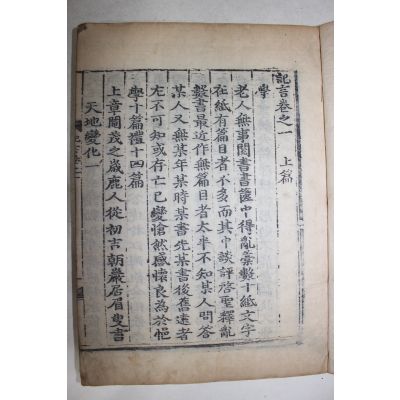 記言卷之一 上篇
學
老人無事閱書篋中得亂藁數十紙文字
在紙有篇目者不多而其中談評啓聖釋亂
繫書最近作無篇目者太半不知某人問答
某人又無某年某時某書先某書後舊遠者
尤不可知或存亡已變愴然感懷良為於悒
學十篇禮十四篇
上章閹茂之歲鹿人從初吉朝巖居眉叟書
天地變化一